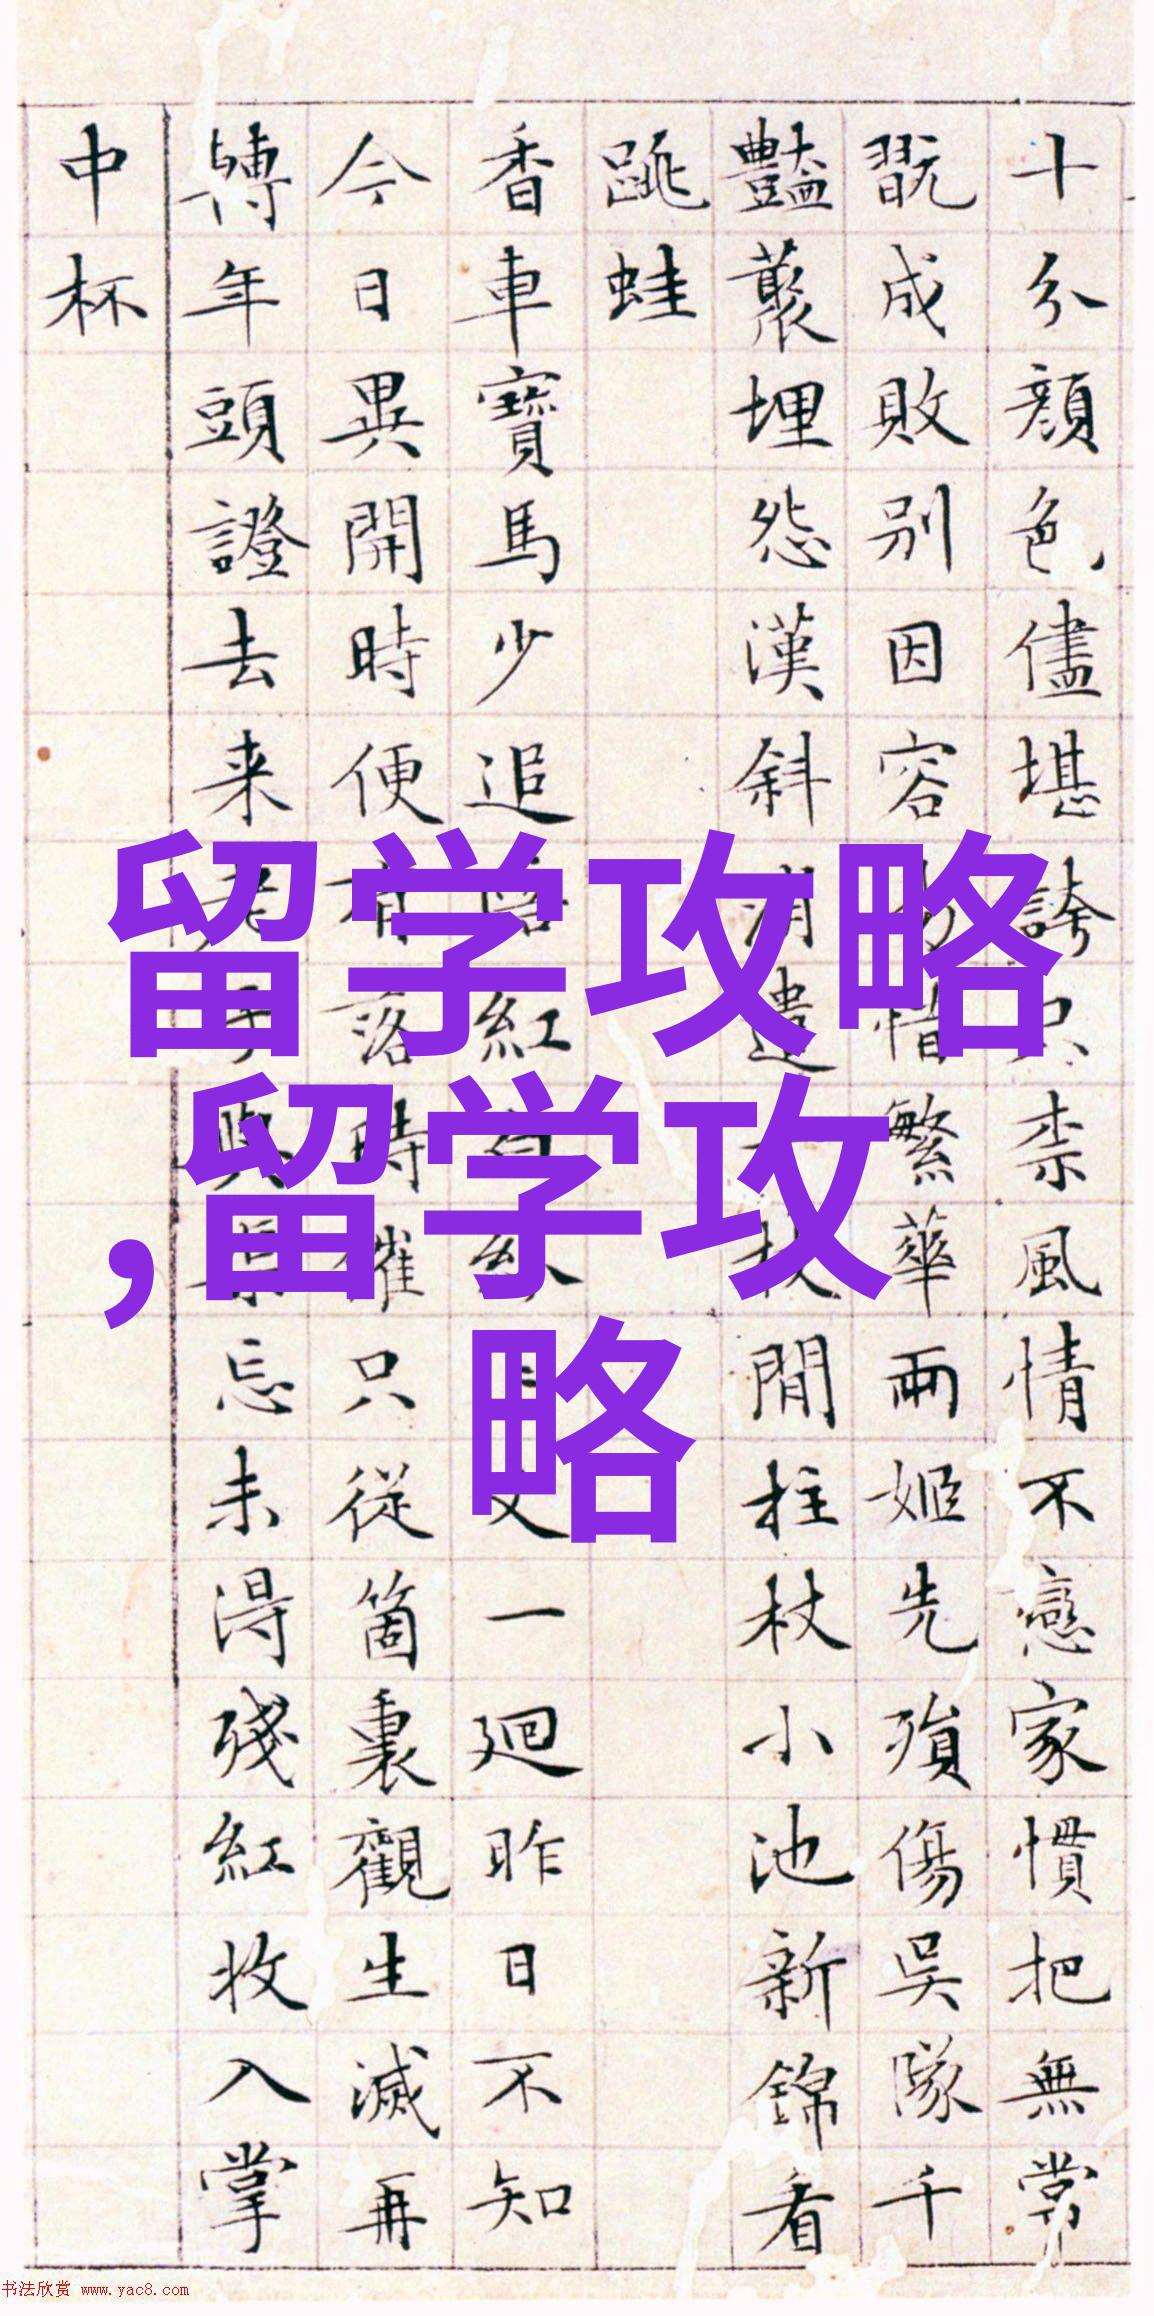 留学攻略
,留学攻
略
十分顔色儘堪誇只柰風情不戀家慣把無常
翫成敗别因容惜繁華兩姬先殞傷吳隊千
豔叢埋怨漢斜消遣枝閒柱杖小池新錦看
跳蛙
香車寶馬少追紅又一廻昨日不知
今日異開時便有落時催只從箇裏觀生滅再
轉年頭證去来老與忘未淂殘紅收入掌
中杯
书法欣赏 www.yac8.com